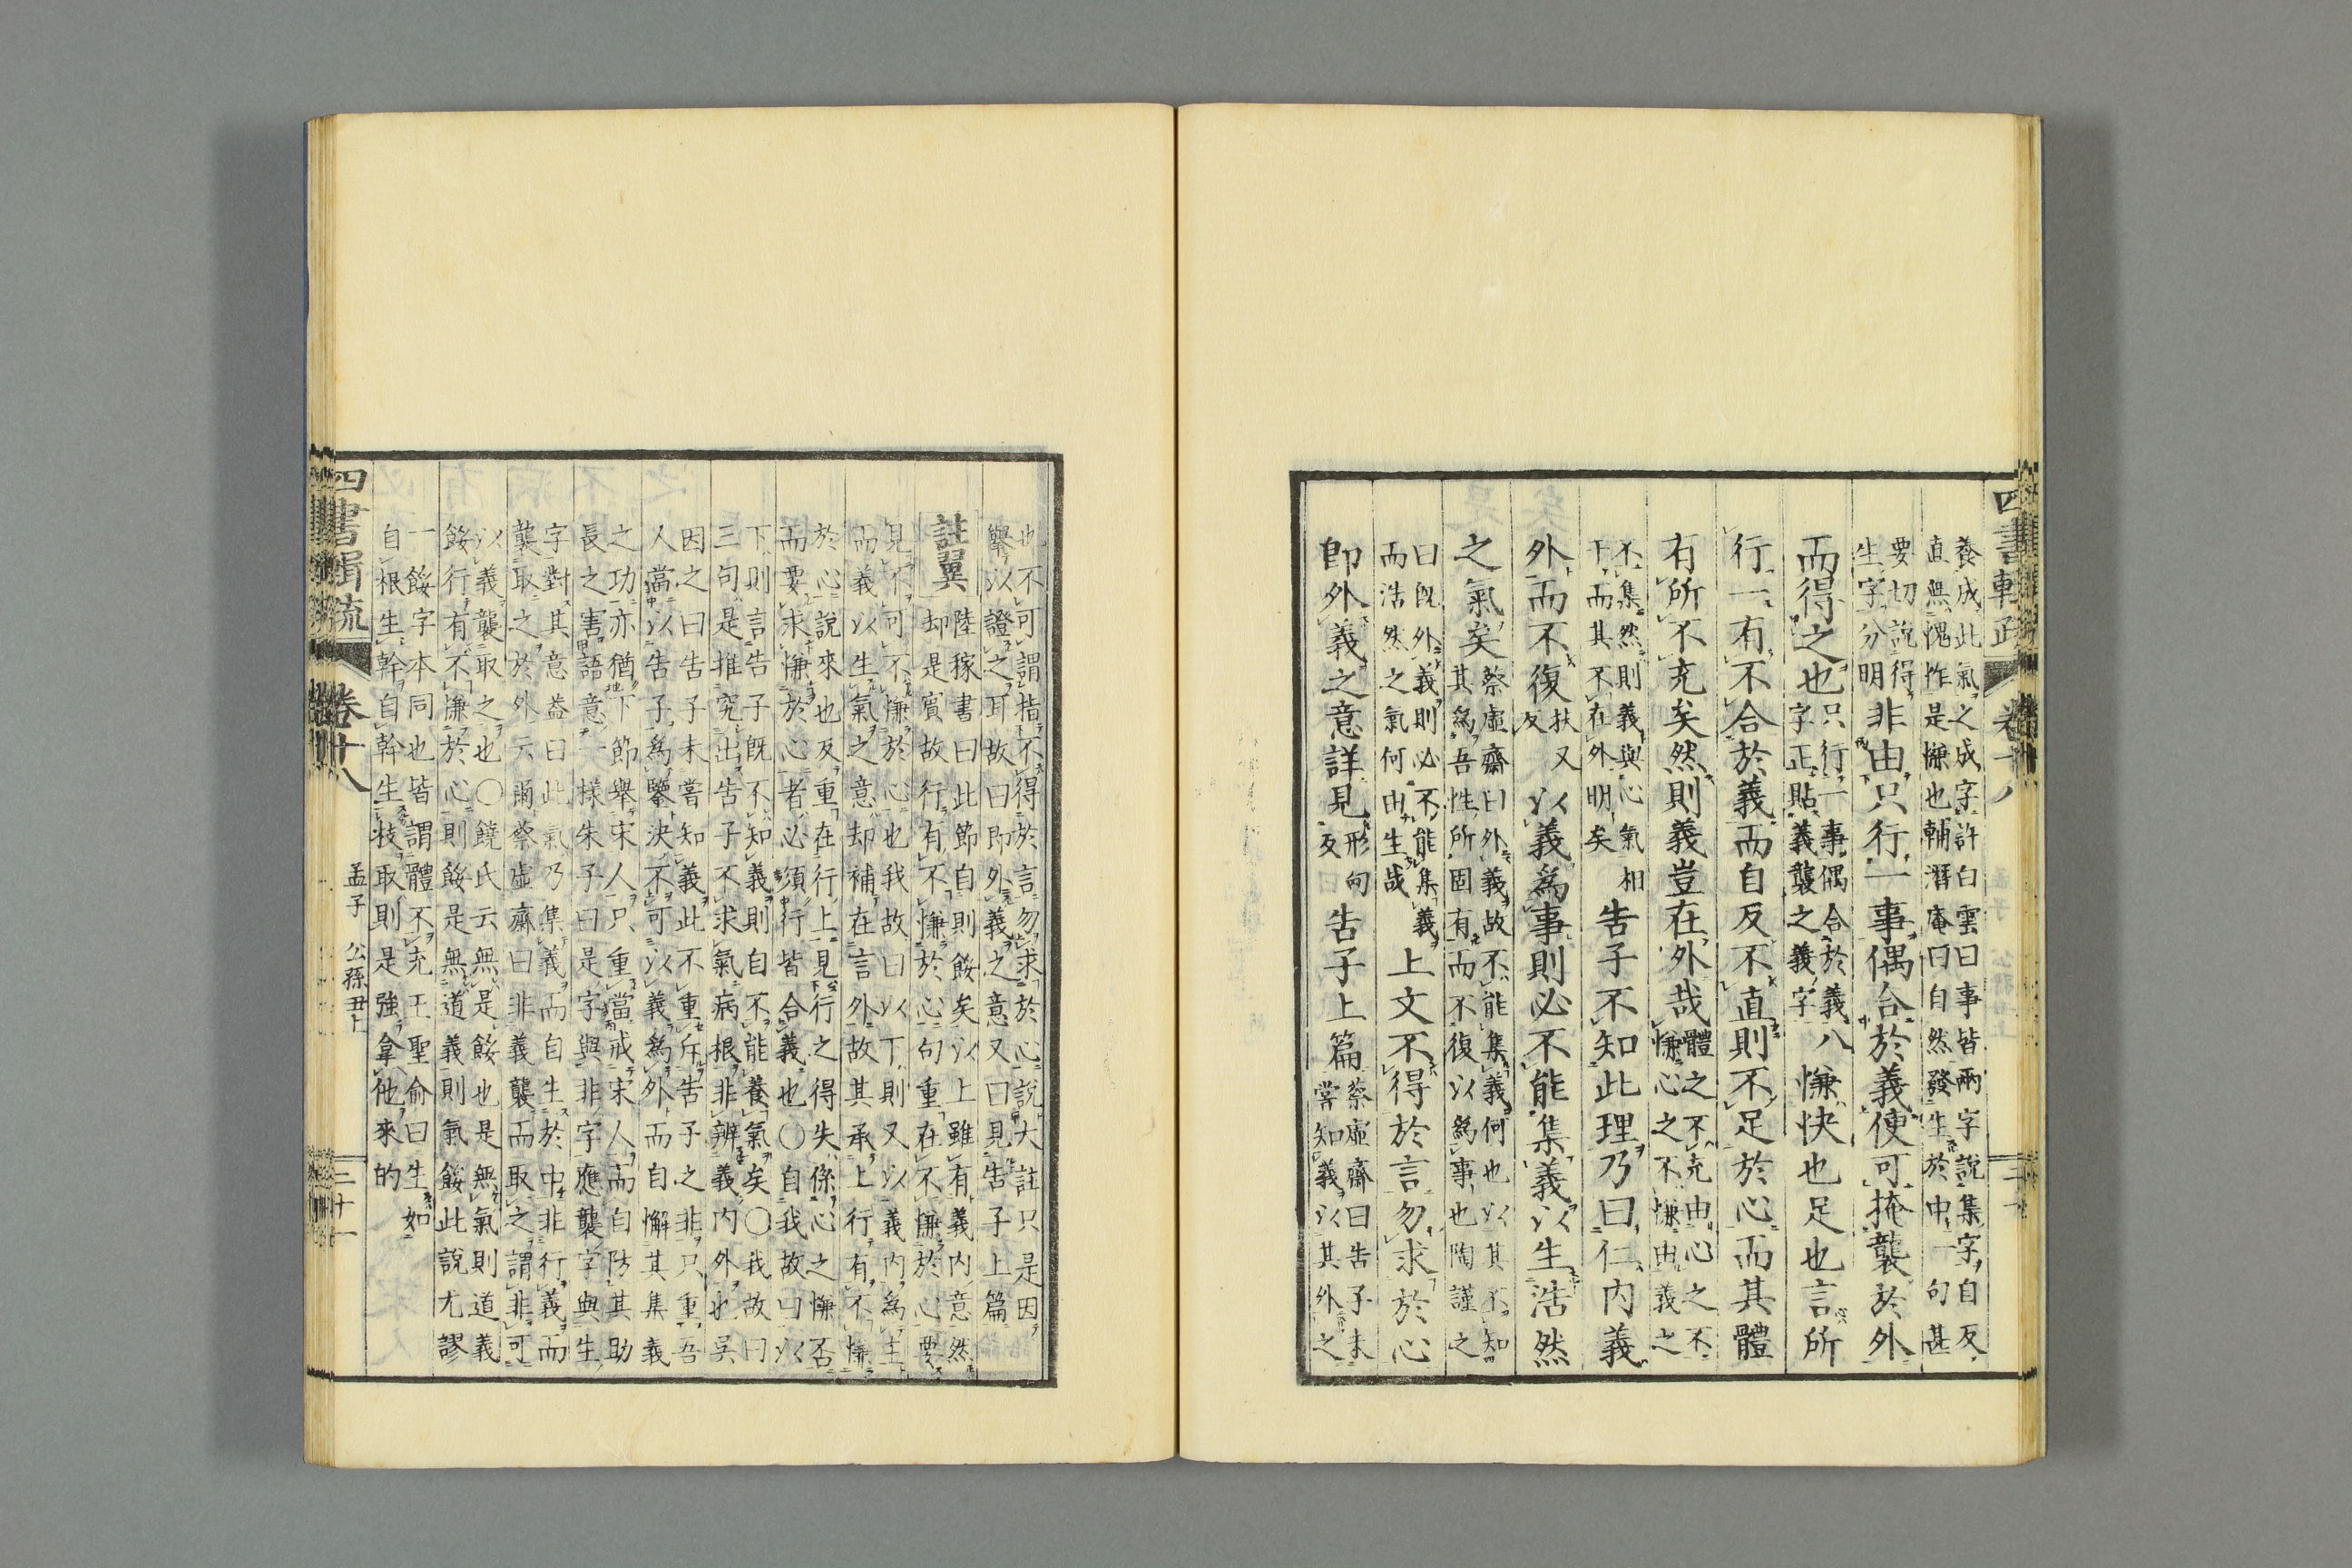 養成此氣之成字許白雲曰事皆兩字說集字自反
直無愧怍是慊也輔潛庵曰自然發生於中一句甚
要切說得
生字分明
非由只行一事偶合於義便可掩襲於外
而得之也
只行一事偶合於義八
字正貼義襲之義字
慊快也足也言所
行一有不合於義而自反不直則不足於心而其體
有所不充矣然則義豈在外哉
體之不充由心之不
慊心之不慊由義之
不集然則義與心氣相
干而其不在外明矣
告子不知此理乃曰仁內義
外而不復
扶又
反
以義為事則必不能集義以生浩然
之氣矣
蔡虛齋曰外義故不能集義何也以其不知
其為吾性所固有而不復以為事也陶謹之
曰既外義則必不能集義
而浩然之氣何由生哉
上文不得於言勿求於心
即外義之意詳見
形甸
反
告子上篇
蔡虛齋曰告子未
嘗知義以其外之
也不可謂指不得於言勿求於心說大註只是因
舉以證之耳故曰即外義之意又曰見告子上篇
註翼
陸稼書曰此節自則餒矣以上雖有義內意然
却是賓故行有不慊於心句重在不慊於心要
見不可不慊於心也我故曰以下則又以義內為主
而義以生氣之意却補在言外故其承上行有不慊
於心說來也反重在行上見行之得失係心之慊否
而要求慊於心者必須行皆合義也〇自我故曰以
下則言告子既不知義則自不能養氣矣〇我故曰
三句是推究出告子不求氣病根非辨義內外也吳
因之曰告子未嘗知義此不重斥告子之非只重吾
人當以告子為鑒決不可以義為外而自懈其集義
之功亦猶下節舉宋人只重當戒宋人而自防其助
長之害語意一樣朱子曰是字與非字應襲字與生
字對其意蓋曰此氣乃集義而自生於中非行義而
襲取之於外云爾蔡虛齋曰非義襲而取之謂非可
以義襲取之也〇饒氏云無是餒也是無氣則道義
餒行有不慊於心則餒是無道義則氣餒此說尤謬
一餒字本同也皆謂體不充王聖俞曰生如
自根生幹自幹生枝取則是強拿他來的
四書輯疏
卷十八
孟子
公孫丑上
三十一